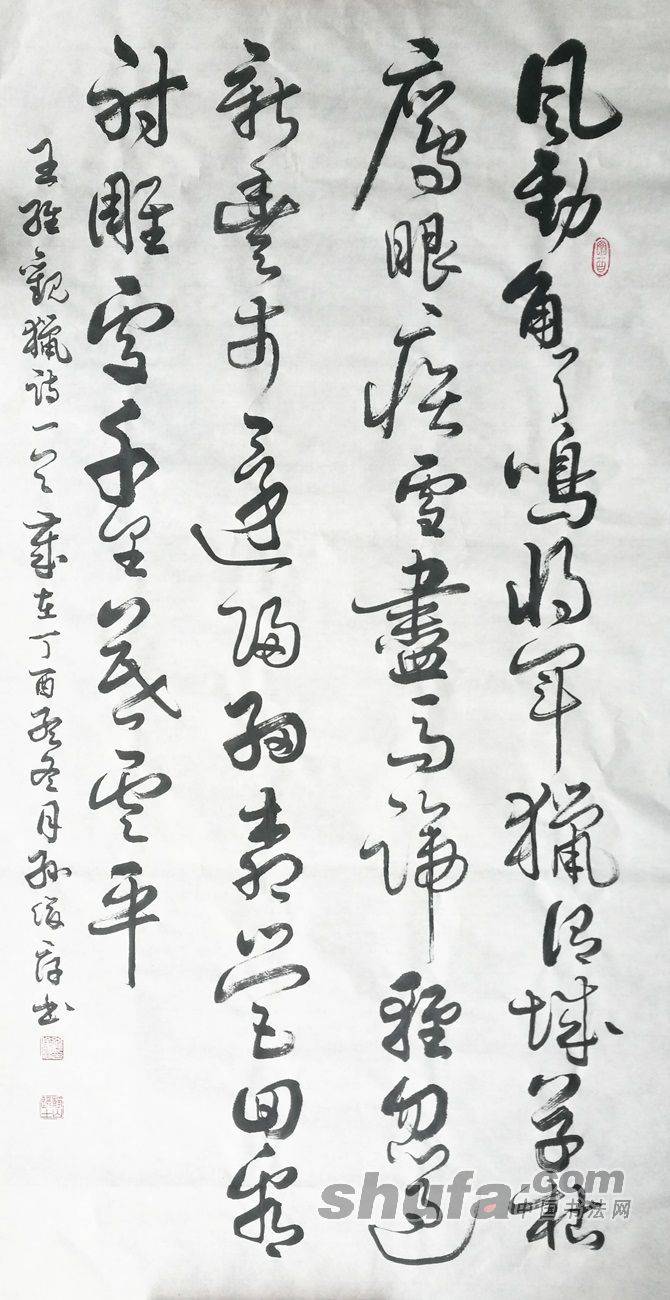 風勁角弓鳴將軍獵渭城草枯
鷹眼疾雪盡馬蹄輕忽過
新豐市還歸細柳營回看
射雕處千里暮雲平
王維觀獵詩一首歲在丁酉冬月孫俊書
shufa.com
中国书法网